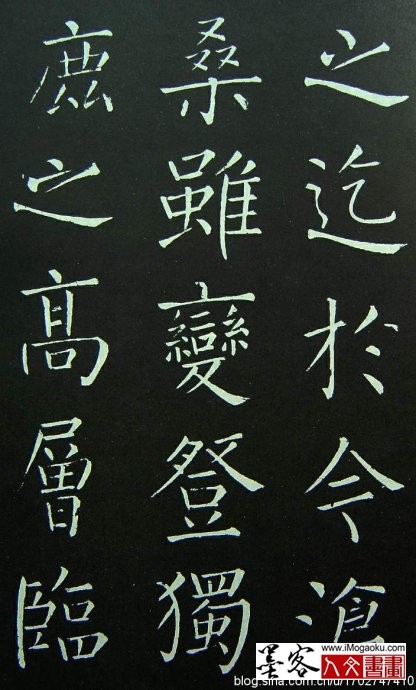 之迄於今滄
桑雖變登獨
鹿之高層臨
www.iMogaoku.com
墨客
人文書畫
blog.sina.com.cn/u/1702747410